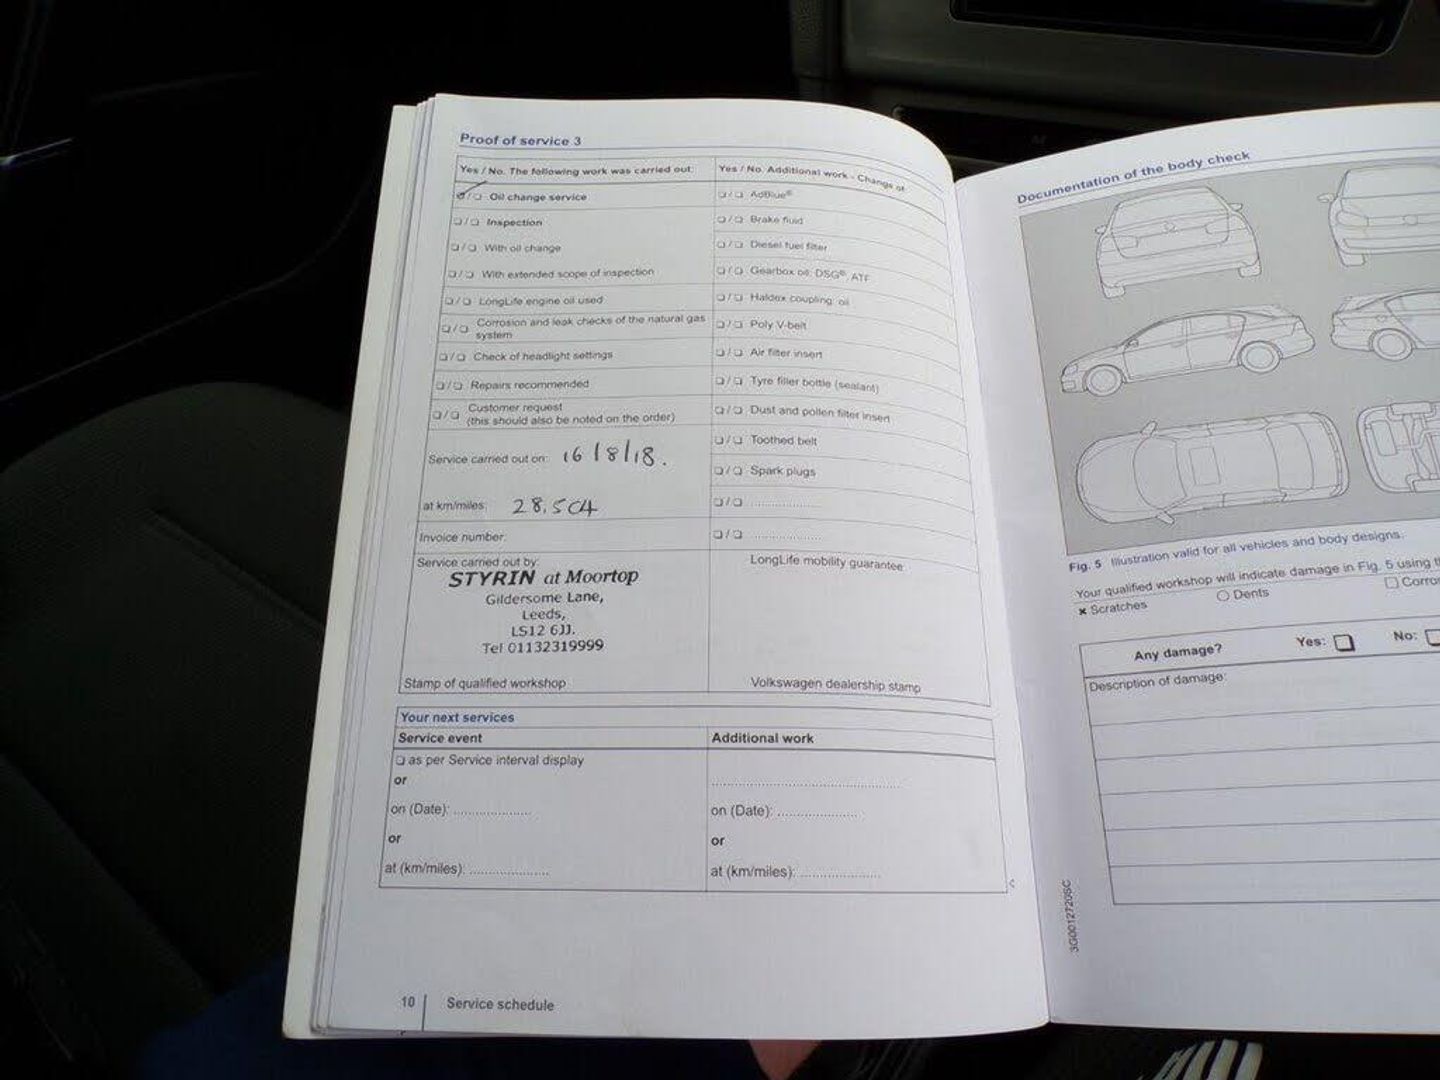 Proof of service 3
Yes / No. The following work was carried out:
Yes / No. Additional work - Change of
❑/❑ Oil change service
❑/❑ AdBlue®
❑/❑ Inspection
❑/❑ Brake fluid
❑/❑ With oil change
❑/❑ Diesel fuel filter
❑/❑ With extended scope of inspection
❑/❑ Gearbox oil: DSG®, ATF
❑/❑ LongLife engine oil used
❑/❑ Haldex coupling: oil
❑/❑ Corrosion and leak checks of the natural gas
system
❑/❑ Poly V-belt
❑/❑ Check of headlight settings
❑/❑ Air filter insert
❑/❑ Repairs recommended
❑/❑ Tyre filler bottle (sealant)
❑/❑ Customer request
(this should also be noted on the order)
❑/❑ Dust and pollen filter insert
❑/❑ Toothed belt
Service carried out on: 16/8/18.
❑/❑ Spark plugs
at km/miles: 28,504
❑/❑ ....................
Invoice number:
❑/❑ ....................
Service carried out by:
LongLife mobility guarantee
STYRIN at Moortop
Gildersome Lane,
Leeds,
LS12 6JJ.
Tel 01132319999
Stamp of qualified workshop
Volkswagen dealership stamp
Your next services
Service event
Additional work
❑ as per Service interval display
or
on (Date): ....................
on (Date): ....................
or
or
at (km/miles): ....................
at (km/miles): ....................
10
Service schedule
Documentation of the body check
Fig. 5 Illustration valid for all vehicles and body designs.
Your qualified workshop will indicate damage in Fig. 5 using
✖ Scratches
○ Dents
☐ Corro
Any damage? Yes: ❑ No: ❑
Description of damage:
3G0012720SC